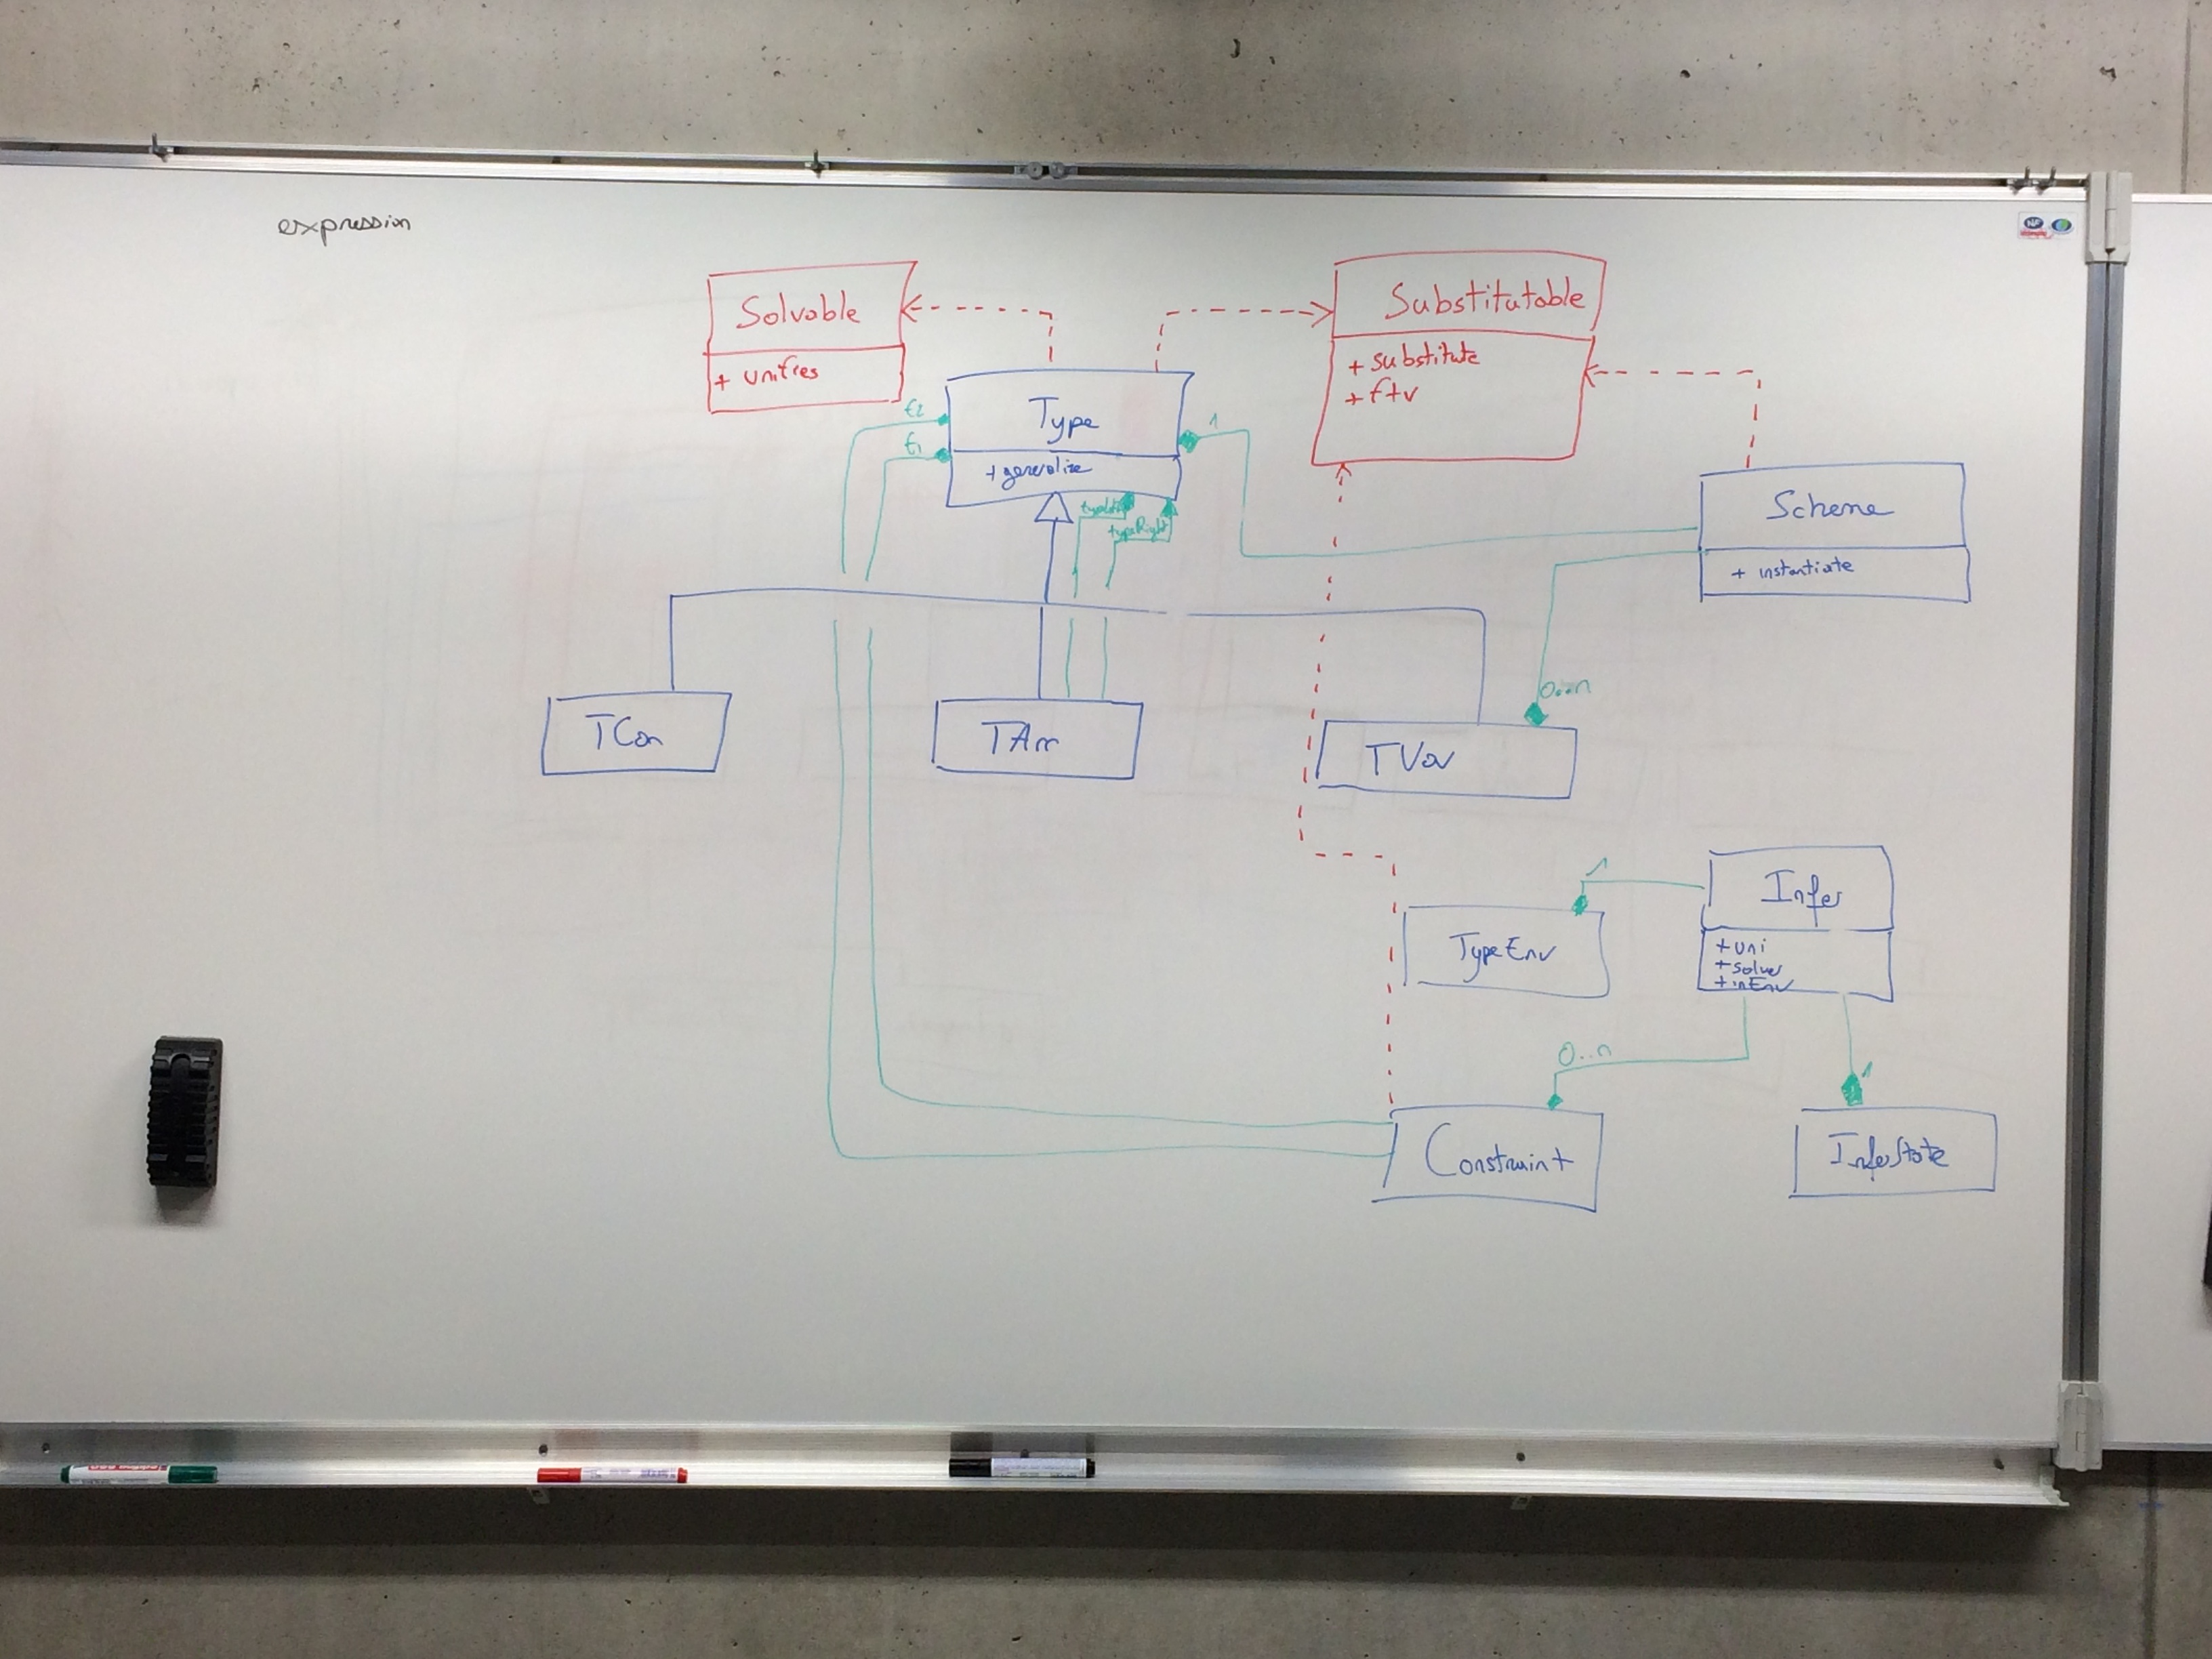 expression
Solvable
+ unifies
Substitutable
+ substitute
+ ftv
t2
t1
Type
+ generalize
1
typeLeft
typeRight
Scheme
+ instantiate
0..n
TCon
TArr
TVar
1
Infer
+ uni
+ solver
+ inEnv
TypeEnv
0..n
1
Constraint
InferState